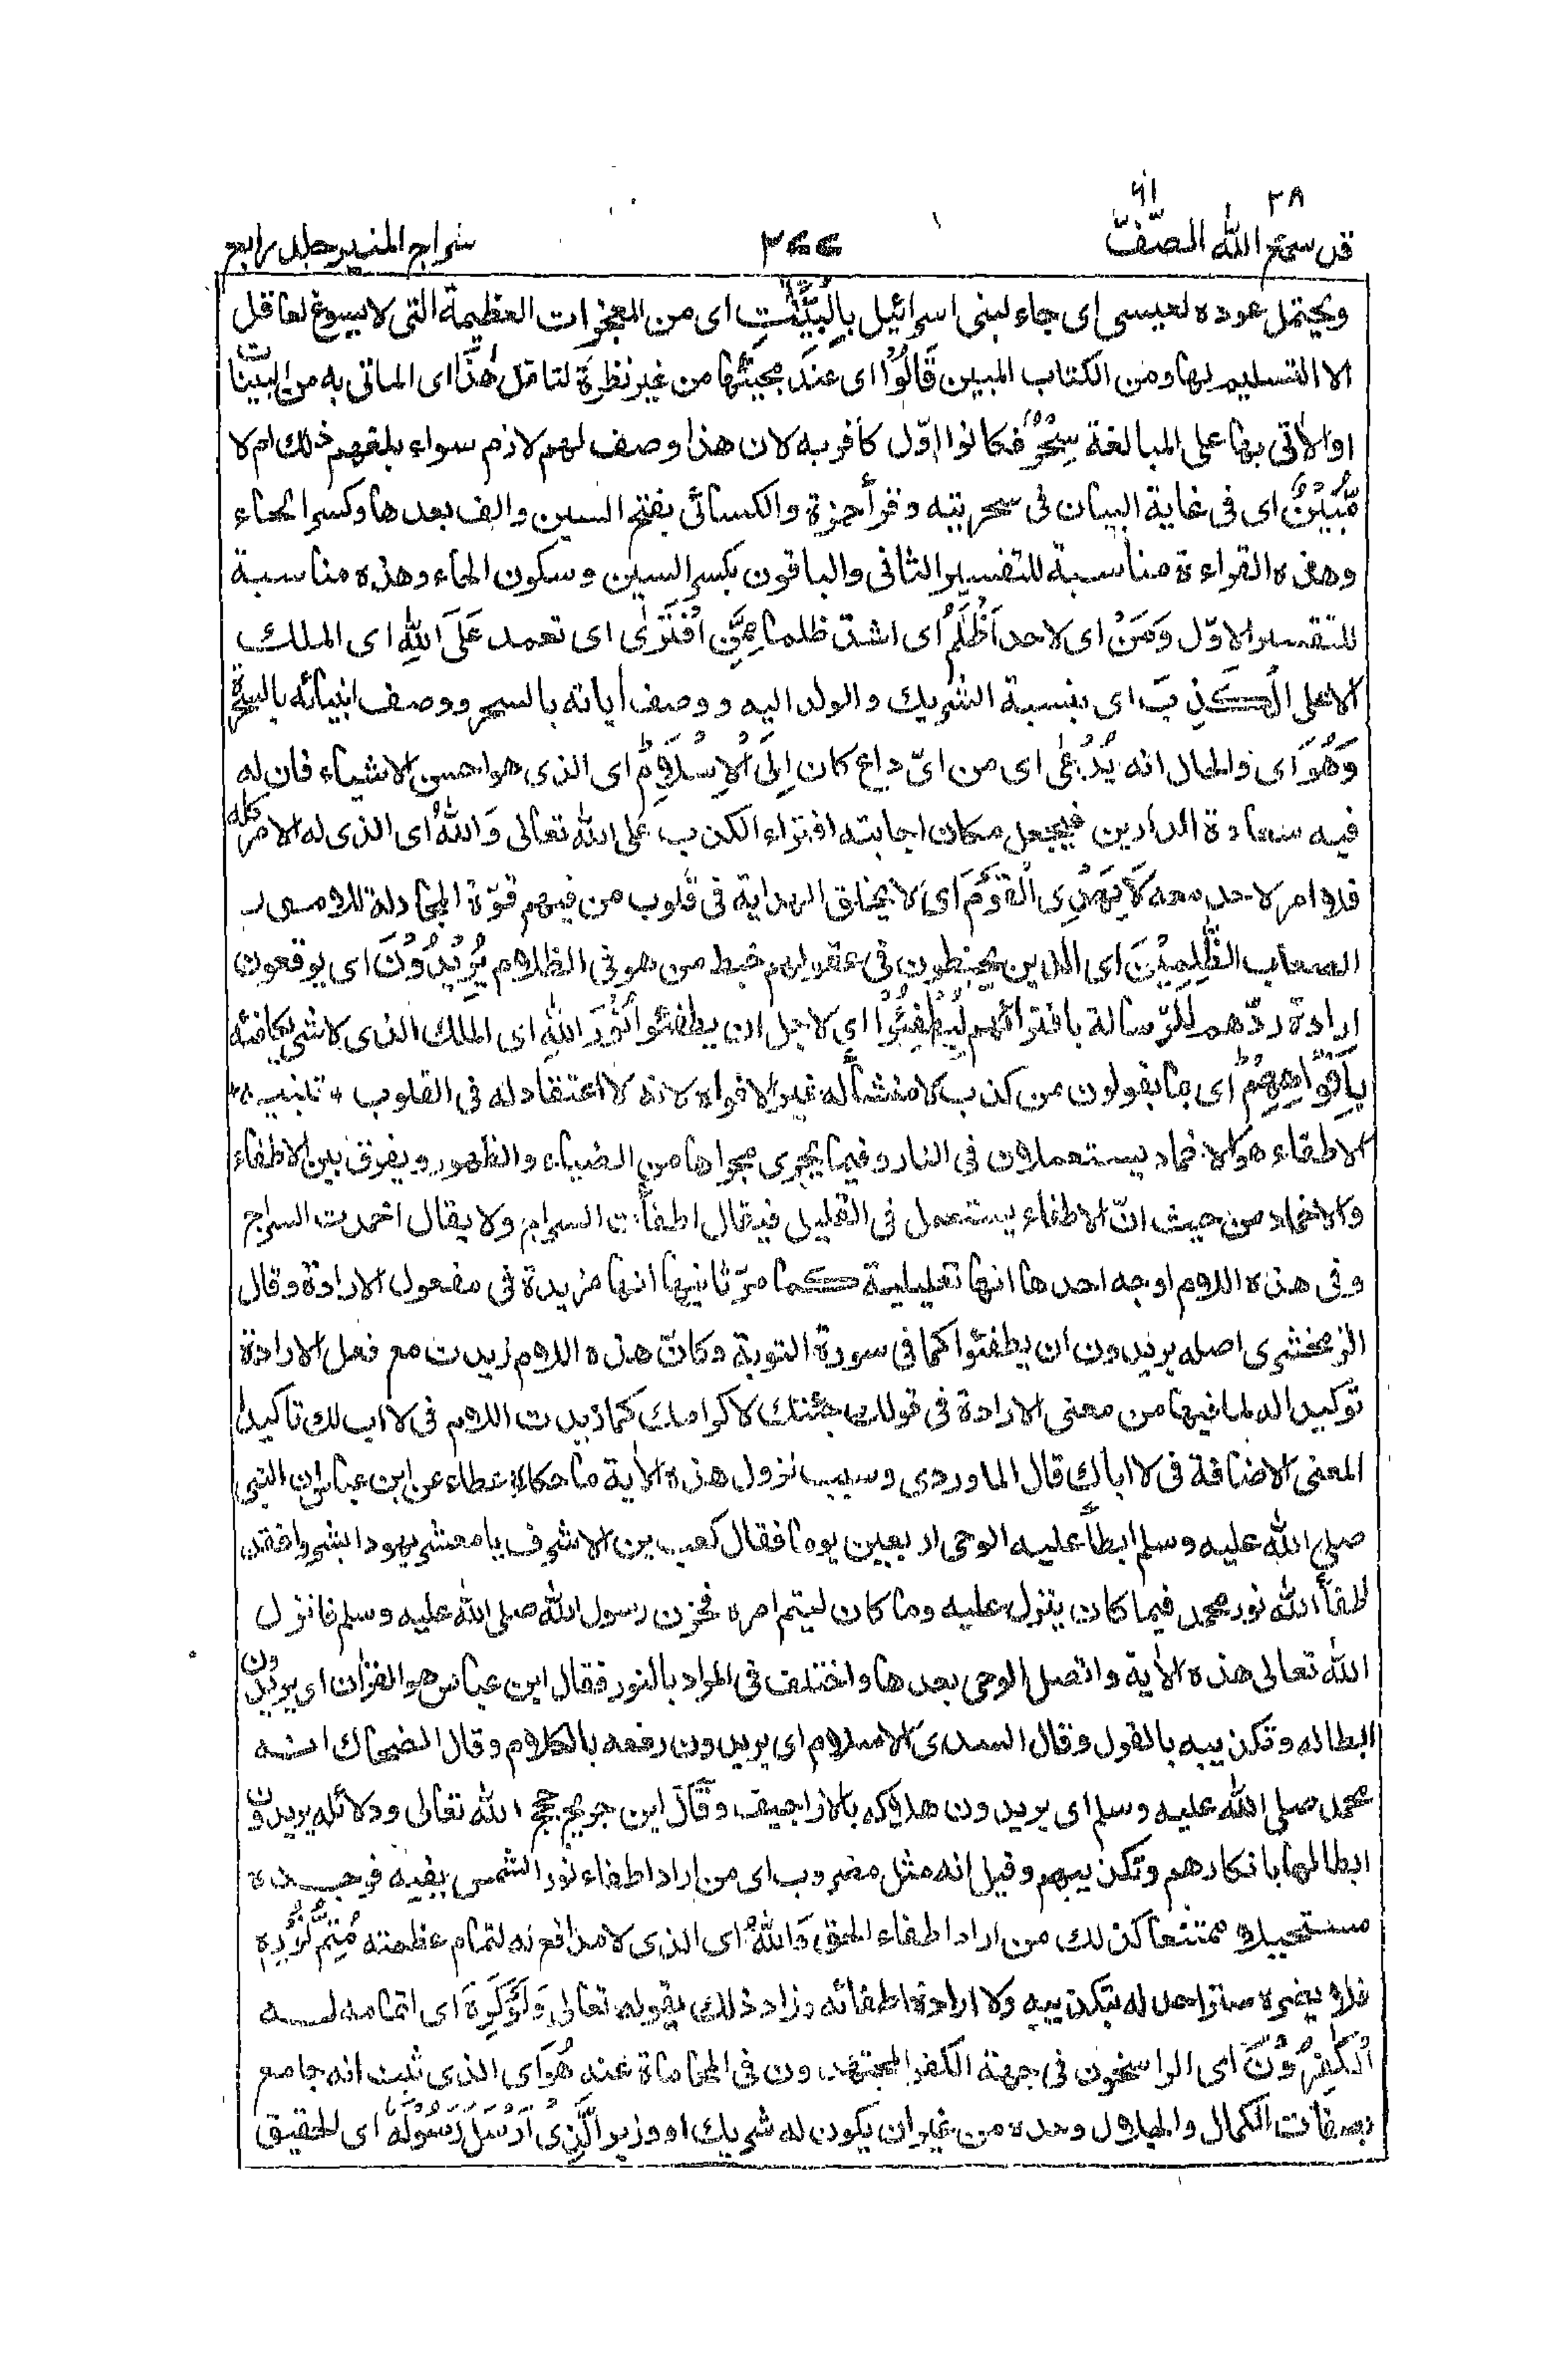 ٢٨ ٦١
قد سمع الله الصّفّ ٢٧٧ سراج المنير جلد رابع
ويحتمل عوده لعيسى اى جاء لبنى اسرائيل بِالْبَيِّنٰتِ اى من المعجزات العظيمة التى لا يسوغ لعاقل
الا التسليم لها ومن الكتاب المبين قَالُوْا اى عند مجيئها من غير نظرة لتامل هٰذَا اى الماتى به من البيّنات
او الاٰتى بها على المبالغة سِحْرٌ فكانوا اوّل كافر به لان هذا وصف لهم لازم سواء بلغهم ذلك ام لا
مُّبِيْنٌ اى فى غاية البيان فى سحريته وقرأ حمزة والكسائى بفتح السين والف بعدها وكسر الحاء
وهذه القراءة مناسبة للتفسير الثانى والباقون بكسر السين وسكون الحاء وهذه مناسبة
للتفسير الاوّل وَمَنْ اى لا احد اَظْلَمُ اى اشدّ ظلما مِمَّنِ افْتَرٰى اى تعمد عَلَى اللّٰهِ اى الملك
الاعلى الْكَذِبَ اى بنسبة الشريك والولد اليه ووصف اٰياته بالسحر ووصف انبيائه بالسحرة
وَهُوَ اى والحال انه يُدْعٰى اى من اىّ داع كان اِلَى الْاِسْلَامِ اى الذى هو احسن الاشياء فان له
فيه سعادة الدارين فيجعل مكان اجابته افتراء الكذب على الله تعالى وَاللّٰهُ اى الذى له الامر كله
فلا امر لاحد معه لَا يَهْدِى الْقَوْمَ اى لا يخلق الهداية فى قلوب من فيهم قوّة المجادلة للامور
الصعاب الظّٰلِمِيْنَ اى الذين يخبطون فى عقولهم خبط من هو فى الظلام يُرِيْدُوْنَ اى يوقعون
ارادة ردّهم للرّسالة بافترائهم لِيُطْفِئُوْا اى لاجل ان يطفئوا نُوْرَ اللّٰهِ اى الملك الذى لا شى يكافئه
بِاَفْوَاهِهِمْ اى بما يقولون من كذب لا منشأ له غير الافواه لانه لا اعتقاد له فى القلوب * تنبيه *
الاطفاء هو الاخماد يستعملان فى النار وفيما يجرى مجراها من الضياء والظهور ويفرق بين الاطفاء
والاخماد من حيث انّ الاطفاء يستعمل فى القليل فيقال اطفأت السراج ولا يقال اخمدت السراج
وفى هذه اللام اوجه احدها انها تعليلية كما مرّ ثانيها انها مزيدة فى مفعول الارادة وقال
الزمخشرى اصله يريدون ان يطفئوا كما فى سورة التوبة وكانّ هذه اللام زيدت مع فعل الارادة
توكيدا له لما فيها من معنى الارادة فى قولك جئتك لاكرامك كما زيدت اللام فى لا اب لك تاكيدا
لمعنى الاضافة فى لا اباك قال الماوردى وسبب نزول هذه الاٰية ما حكاه عطاء عن ابن عباس ان النبى
صلى الله عليه وسلم ابطأ عليه الوحى اربعين يوما فقال كعب بن الاشرف يا معشر يهود ابشروا فقد
اطفأ الله نور محمد فيما كان ينزل عليه وما كان ليتم امره فحزن رسول الله صلى الله عليه وسلم فانزل
الله تعالى هذه الاٰية واتصل الوحى بعدها واختلف فى المراد بالنور فقال ابن عباس هو القرأن اى يريدون
ابطاله وتكذيبه بالقول وقال السدى الاسلام اى يريدون رفعه بالكلام وقال الضحاك انه
محمد صلى الله عليه وسلم اى يريدون هلاكه بالاراجيف وقال ابن جريج حجج الله تعالى ودلائله يريدون
ابطالها بانكارهم وتكذيبهم وقيل انه مثل مضروب اى من اراد اطفاء نور الشمس بفيه فوجده
مستحيلا ممتنعا كذلك من اراد اطفاء الحق وَاللّٰهُ اى الذى لا مدافع له لتمام عظمته مُتِمُّ نُوْرِهٖ
فلا يضره ستر احد له بتكذيبه ولا ارادة اطفائه وزاد ذلك بقوله تعالى وَلَوْ كَرِهَ اى اتمامه له
الْكٰفِرُوْنَ اى الراسخون فى جهة الكفر المجتهدون فى المحاماة عنه هُوَ اى الذى ثبت انه جامع
بصفات الكمال والجلال وحده من غير ان يكون له شريك او وزير الَّذِىْ اَرْسَلَ رَسُوْلَهٗ اى للحقيق